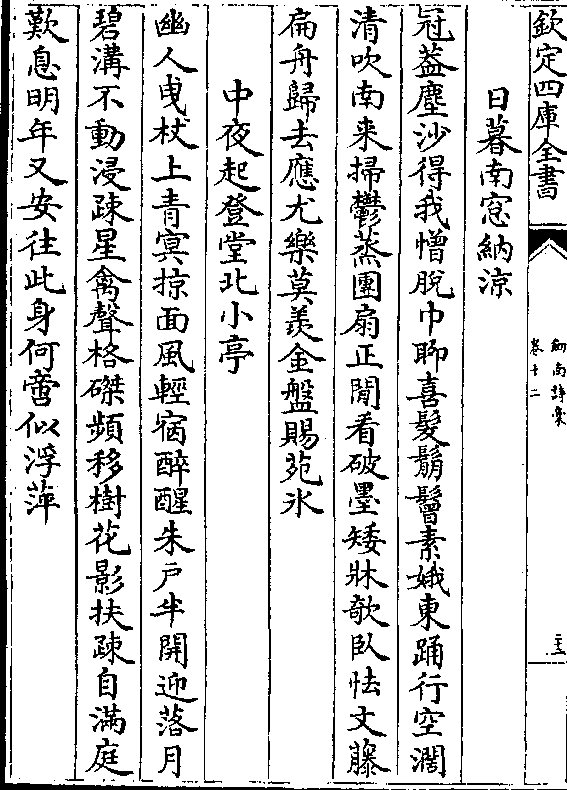 欽定四庫全書
劍南詩槀
卷十二
日暮南窓納涼
冠葢塵沙得我憎脫巾聊喜髮鬅鬙素娥東踊行空濶
清吹南来掃鬱蒸團扇正閒看破墨矮牀欹臥怯文藤
扁舟歸去應尤樂莫羡金盤賜苑氷
中夜起登堂北小亭
幽人曳杖上青冥掠面風輕宿醉醒朱戶半開迎落月
碧溝不動浸疎星禽聲格磔頻移樹花影扶疎自滿庭
歎息明年又安往此身何啻似浮萍